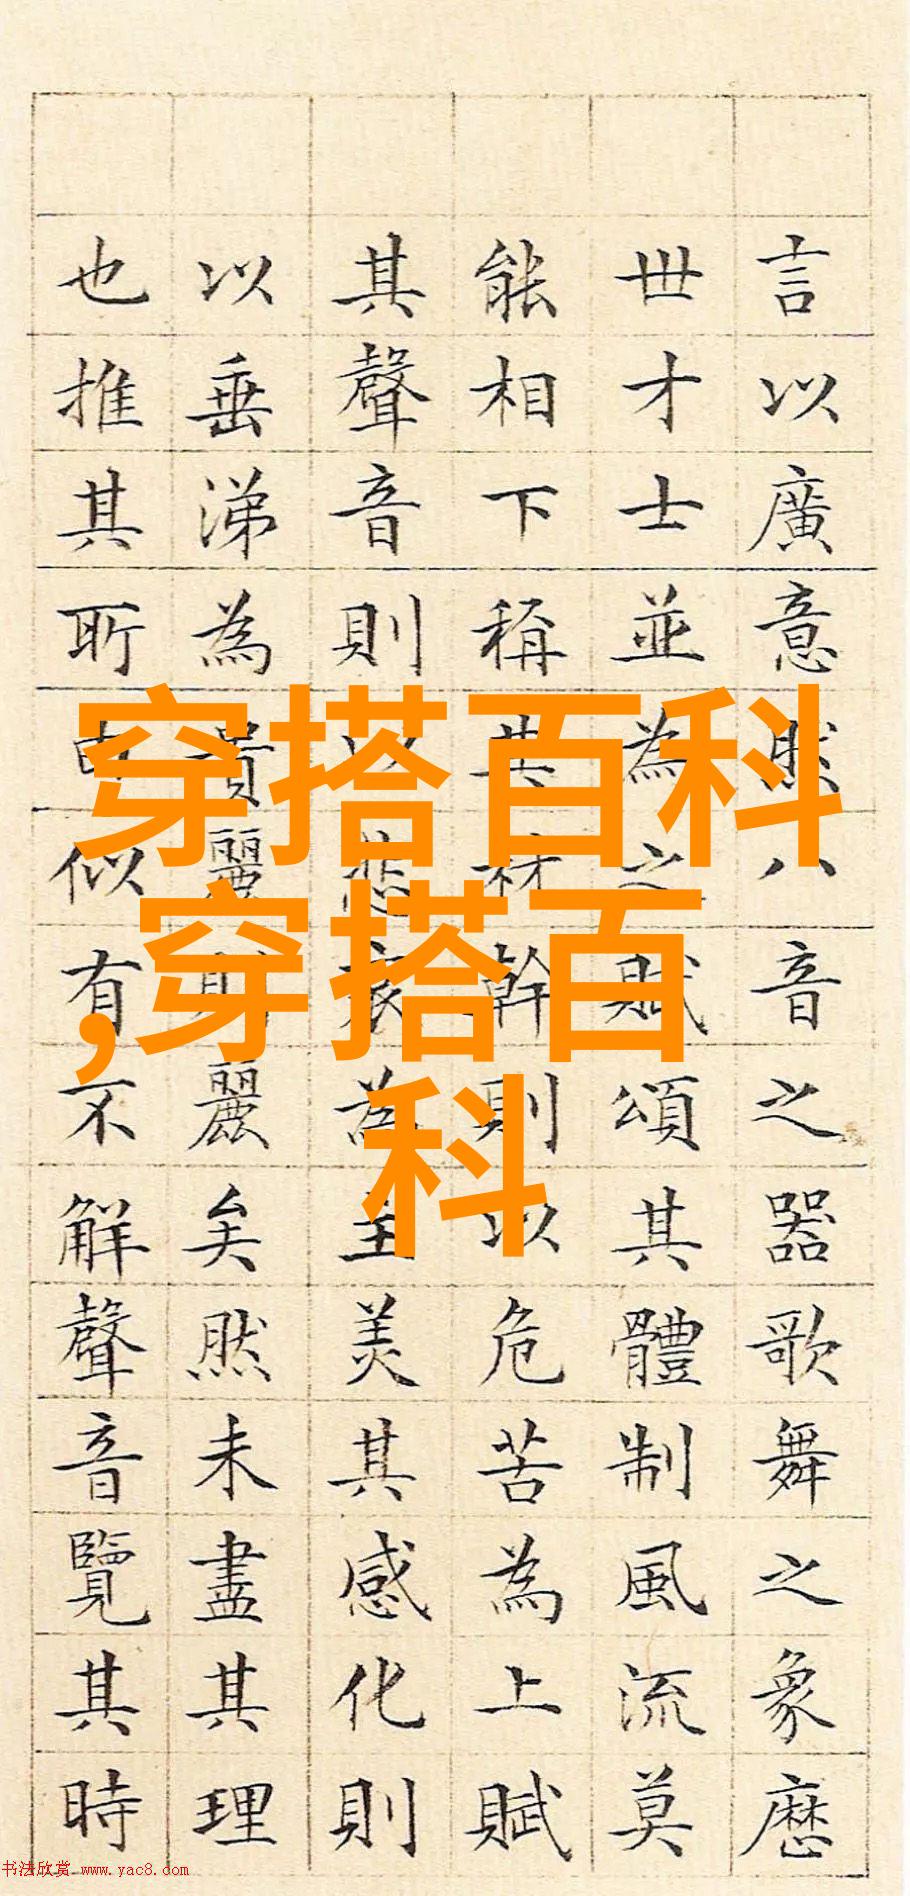 言以廣意然八音之器歌舞之象歷
世才士並為之賦頌其體制風流莫
能相下稱其材幹則以危苦為上賦
其聲音則以悲哀為主美其感化則
以垂涕為貴麗則麗矣然未盡其理
也推其所由似有不解聲音覽其時
穿搭百科
,穿搭百
科
书法欣赏 www.yac8.com